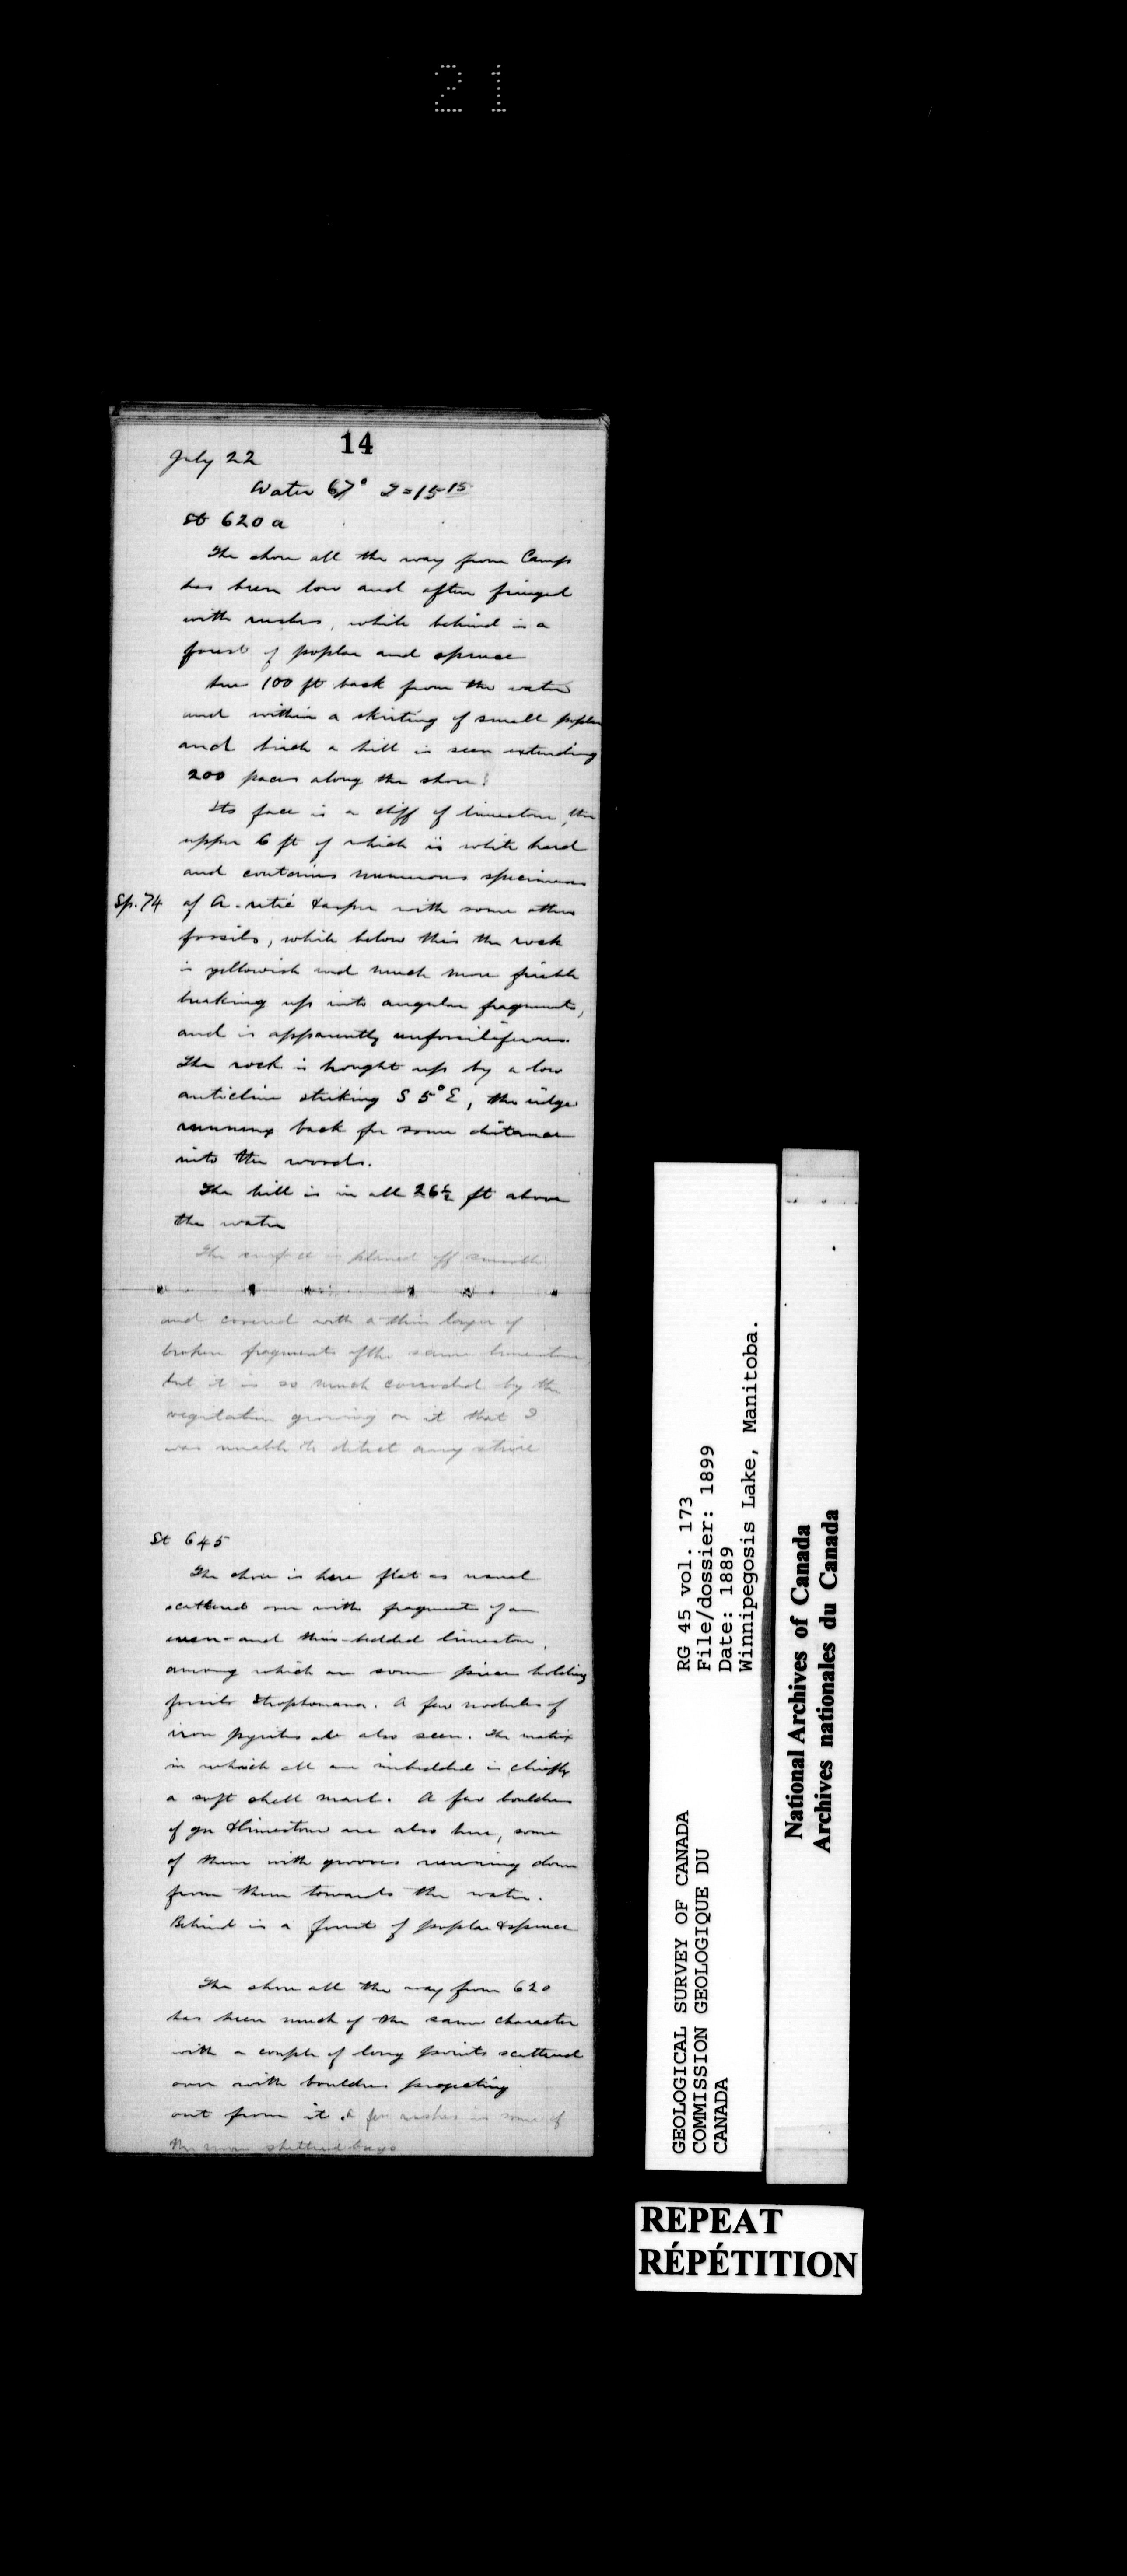 21
14
July 22
Water 67° T=15 15
St 620 a
The shore all the way from Camp
has been low and often fringed
with rushes, while behind is a
forest of poplar and spruce
here 100 ft back from the water
and within a skirting of small poplar
and birch a hill is seen extending
200 paces along the shore.
Its face is a cliff of limestone, the
upper 6 ft of which is white hard
and contains numerous specimens
Sp. 74 of A. retic &aspera with some other
fossils, while below this the rock
is yellowish and much more friable
breaking up into angular fragments,
and is apparently unfossiliferous.
The rock is brought up by a low
anticline striking S 5° E, the ridge
running back for some distance
into the woods.
The hill is in all 26½ ft above
the water
The surface is planed off smooth
and covered with a thin layer of
broken fragments of the same limestone,
but it is so much corroded by the
vegitation growing on it that I
was unable to detect any striae
St 645
The shore is here flat as usual
scattered over with fragments of an
even- and thin-bedded limestone,
among which are some pieces holding
fossils Strophomena. A few nodules of
iron pyrites are also seen. The matrix
in which all are imbedded is chiefly
a soft shell marl. A few boulders
of gn &limestone are also here, some
of them with grooves running down
from them towards the water.
Behind is a forest of poplar &spruce
The shore all the way from 620
has been much of the same character
with a couple of long points scattered
over with boulders projecting
out from it & few rushes in some of
the more sheltered bays
GEOLOGICAL SURVEY OF CANADA
COMMISSION GEOLOGIQUE DU
CANADA
RG 45 vol. 173
File/dossier: 1899
Date: 1889
Winnipegosis Lake, Manitoba.
National Archives of Canada
Archives nationales du Canada
REPEAT
RÉPÉTITION